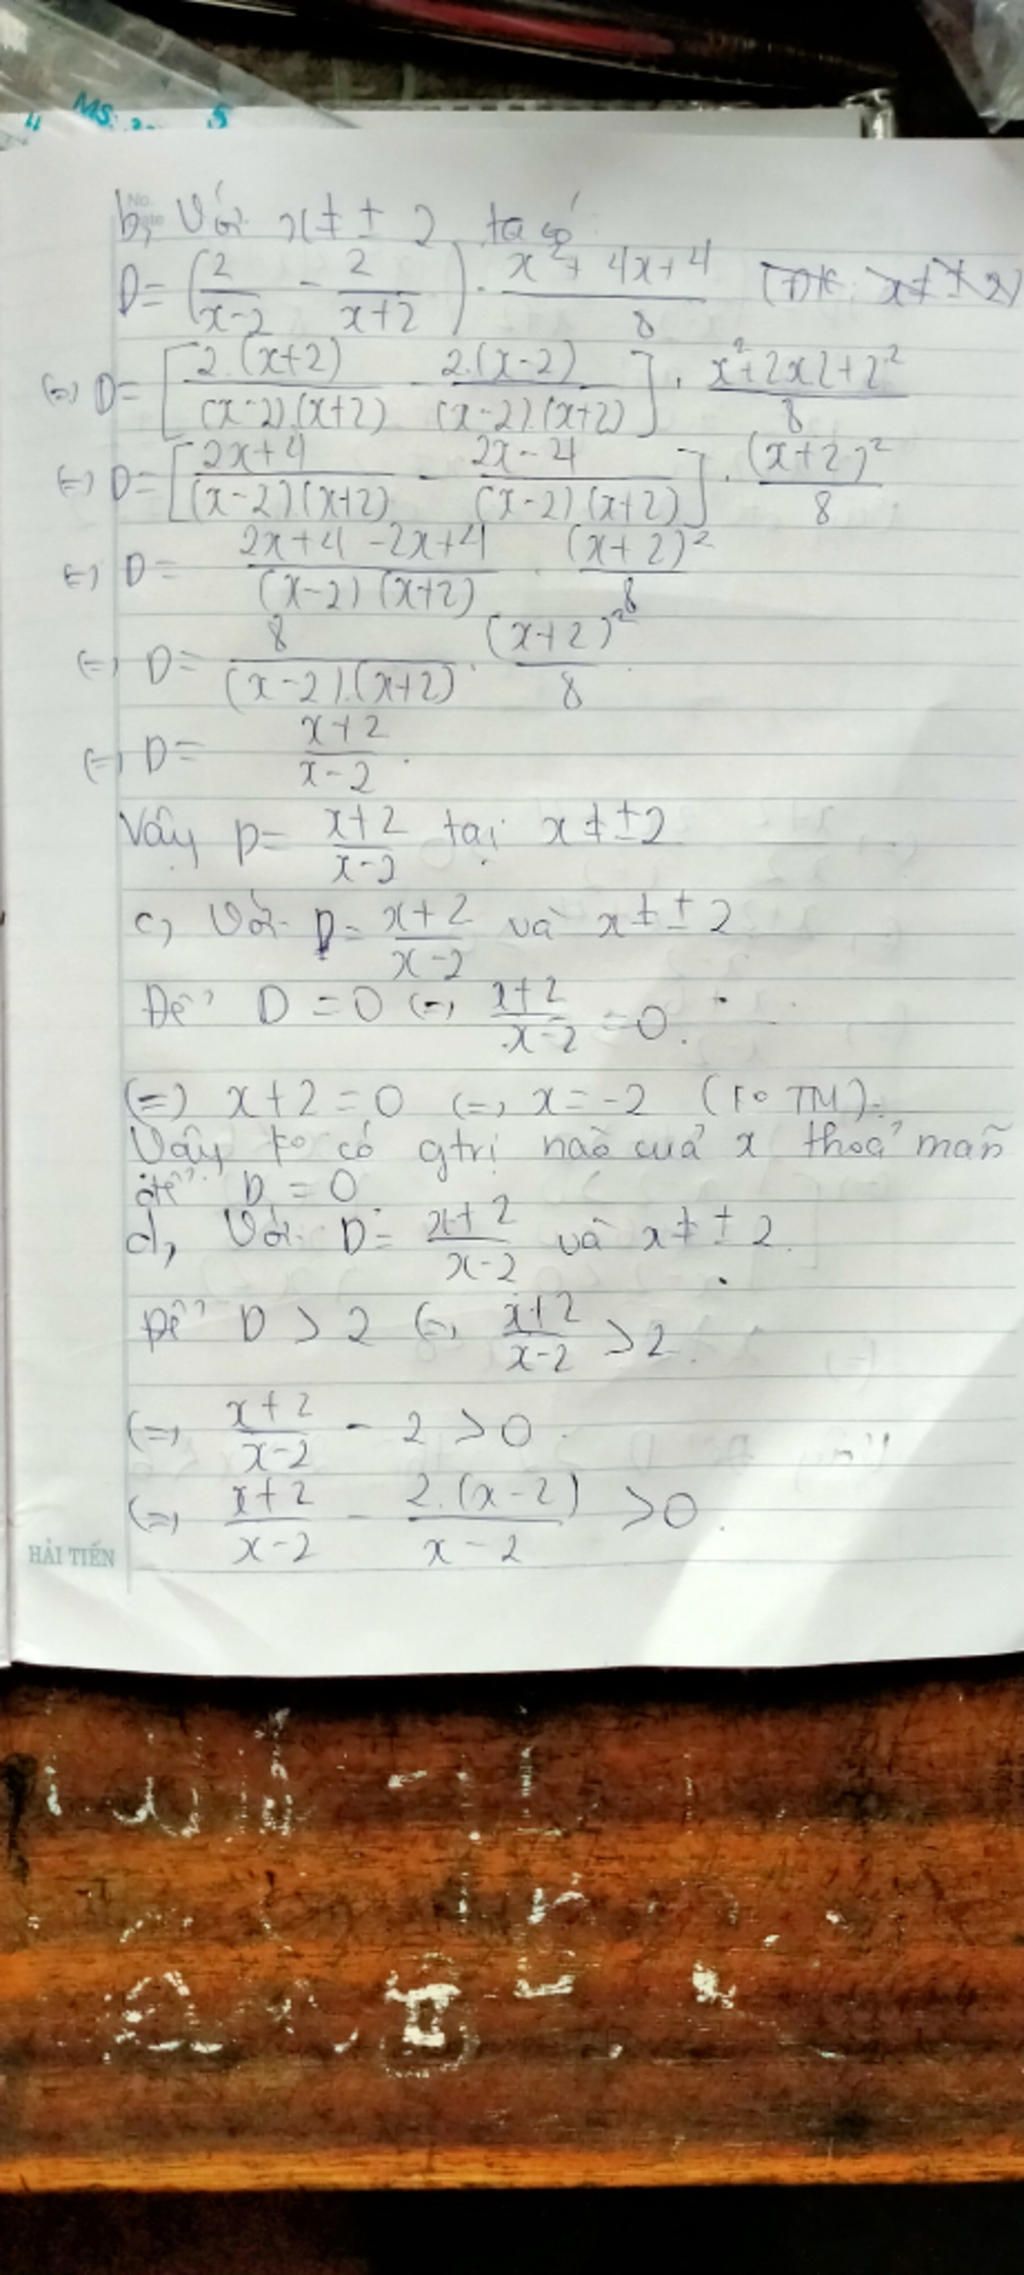 MS:
No.
b, Với x ≠ ± 2 ta có
D = (2/(x-2) - 2/(x+2)) . (x²+4x+4)/8 (ĐK: x ≠ ± 2)
(=) D = [2.(x+2)/((x-2).(x+2)) - 2.(x-2)/((x-2).(x+2))] . (x²+2x2+2²)/8
(=) D = [(2x+4)/((x-2).(x+2)) - (2x-4)/((x-2)(x+2))] . (x+2)²/8
(=) D = (2x+4-2x+4)/((x-2)(x+2)) . (x+2)²/8
(=) D = 8/((x-2).(x+2)) . (x+2)²/8
(=) D = (x+2)/(x-2).
Vậy D = (x+2)/(x-2) tại x ≠ ± 2
c, Với D = (x+2)/(x-2) và x ≠ ± 2
Để D = 0 (=) (x+2)/(x-2) = 0.
(=) x+2 = 0 (=) x = -2 (Ko TM).
Vậy ko có gtrị nào của x thoả mãn
để D = 0
d, Với D = (x+2)/(x-2) và x ≠ ± 2.
Để D > 2 (=) (x+2)/(x-2) > 2.
(=) (x+2)/(x-2) - 2 > 0
(=) (x+2)/(x-2) - 2.(x-2)/(x-2) > 0.
HẢI TIẾN